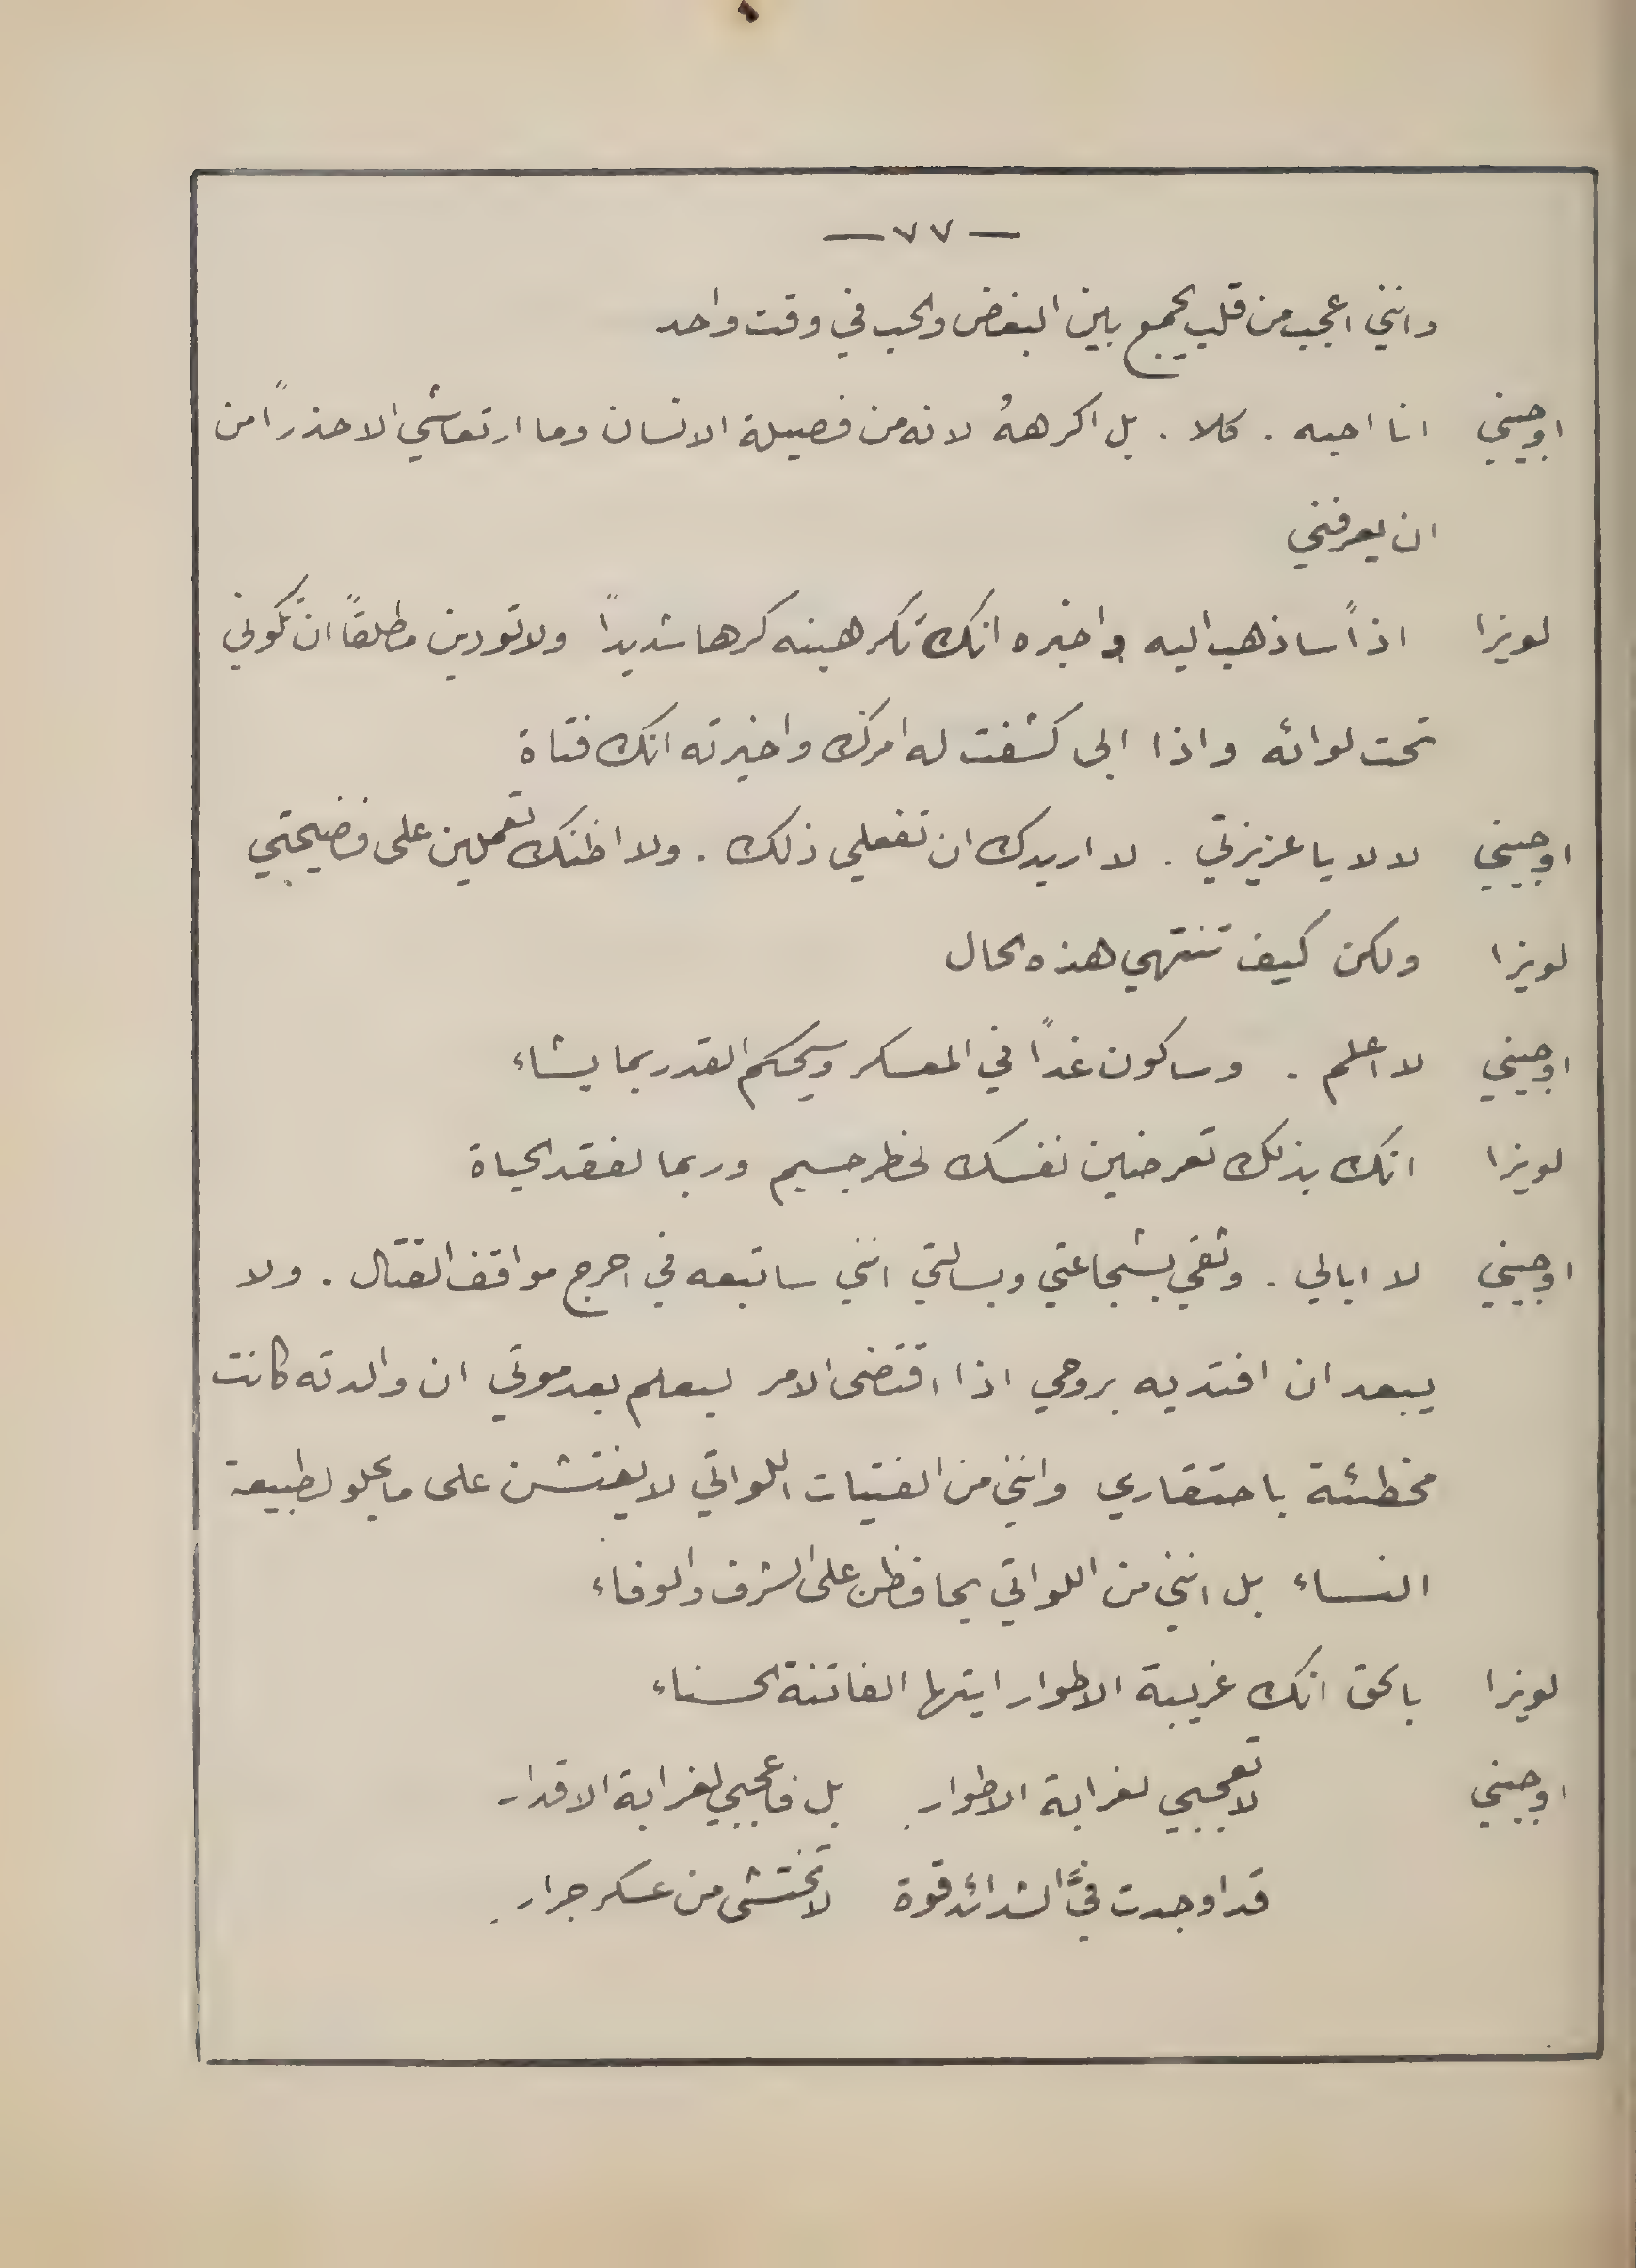 — ٧٧ —
وانني اعجب من قلب يجمع بين البغض والحب في وقت واحد
اوجيني انا احبه . كلا . بل اكرههُ لانه من فصيلة الانسان وما ارتعاشي الا حذراً من
ان يعرفني
لويزا اذاً ساذهب اليه واخبره انك تكرهينه كرها شديداً ولا تودين مطلقاً ان تكوني
تحت لوائه واذا ابى كشفت له امرك واخبرته انك فتاة
اوجيني لا لا يا عزيزتي . لا اريدك ان تفعلي ذلك . ولا اظنك تعملين على فضيحتي
لويزا ولكن كيف تنتهي هذه الحال
اوجيني لا اعلم . وساكون غداً في المعسكر وسيحكم القدر بما يشاء
لويزا انك بذلك تعرضين نفسك لخطر جسيم وربما لفقد الحياة
اوجيني لا ابالي . وثقي بشجاعتي وبسالتي انني ساتبعه في احرج مواقف القتال . ولا
يبعد ان افتديه بروحي اذا اقتضى الامر ليعلم بعد موتي ان والدته كانت
مخطئة باحتقاري وانني من الفتيات اللواتي لا يفتشن على ما يحلو لطبيعة
النساء بل انني من اللواتي يحافظن على الشرف والوفاء
لويزا بالحق انك غريبة الاطوار ايتها الفاتنة الحسناء
اوجيني لا تعجبي لغرابة الاطوار بل فاعجبي لغرابة الاقدار
قد اوجدت فيَّ الشدائد قوة لا تختشى من عسكر جرار